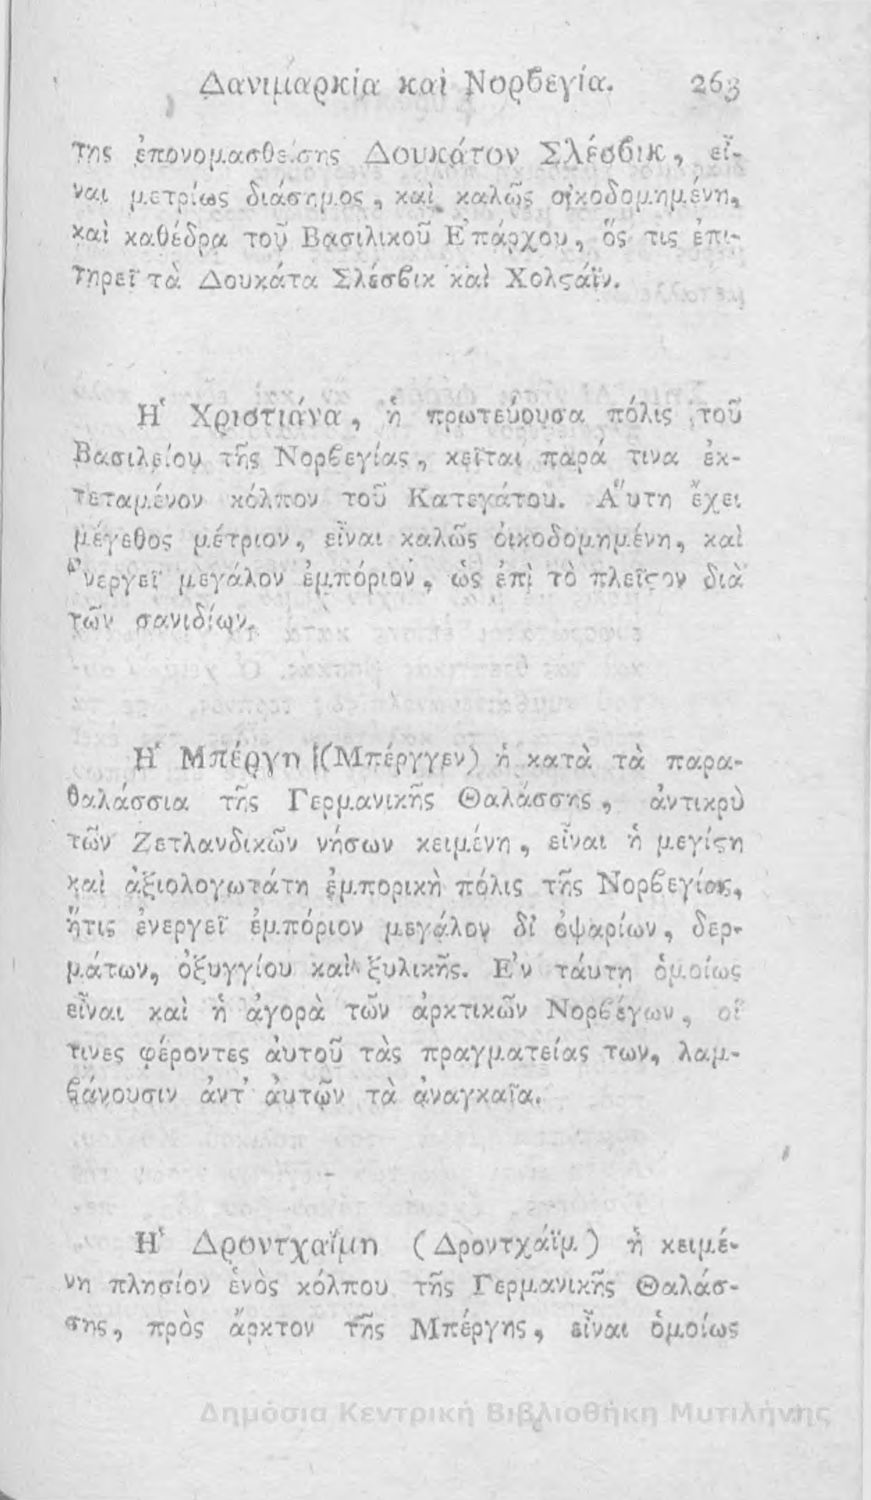 Δανιμαρκία καὶ Νορϐεγία. 263
της ἐπονομασθείσης Δουκάτον Σλέσϐικ, εἶ-
ναι μετρίως διάσημος, καὶ καλῶς οἰκοδομημένη,
καὶ καθέδρα τοῦ Βασιλικοῦ Ἐπάρχου, ὅς τις ἐπι-
τηρεῖ τὰ Δουκάτα Σλέσϐικ καὶ Χολϛάϊν.
Ἡ Χριστιάνα, ἡ πρωτεύουσα πόλις τοῦ
Βασιλείου τῆς Νορϐεγίας, κεῖται παρά τινα ἐκ-
τεταμένον κόλπον τοῦ Κατεγάτου. Αὕτη ἔχει
μέγεθος μέτριον, εἶναι καλῶς οἰκοδομημένη, καὶ
ἐνεργεῖ μεγάλον ἐμπόριον, ὡς ἐπὶ τὸ πλεῖϛον διὰ
τῶν σανιδίων.
Ἡ Μπέργη (Μπέργγεν) ἡ κατὰ τὰ παρα-
θαλάσσια τῆς Γερμανικῆς Θαλάσσης, ἀντικρὺ
τῶν Ζετλανδικῶν νήσων κειμένη, εἶναι ἡ μεγίϛη
καὶ ἀξιολογωτάτη ἐμπορικὴ πόλις τῆς Νορϐεγίας,
ἥτις ἐνεργεῖ ἐμπόριον μεγάλον δἰ ὀψαρίων, δερ-
μάτων, ὀξυγγίου καὶ ξυλικῆς. Ἐν ταύτῃ ὁμοίως
εἶναι καὶ ἡ ἀγορὰ τῶν ἀρκτικῶν Νορϐέγων, οἵ
τινες φέροντες ἀυτοῦ τὰς πραγματείας των, λαμ-
ϐάνουσιν ἀντ' ἀυτῶν τὰ ἀναγκαῖα.
Ἡ Δροντχαΐμη (Δροντχάϊμ) ἡ κειμέ-
νη πλησίον ἑνὸς κόλπου τῆς Γερμανικῆς Θαλάσ-
σης, πρὸς ἄρκτον τῆς Μπέργης, εἶναι ὁμοίως
Δημόσια Κεντρική Βιβλιοθήκη Μυτιλήνης